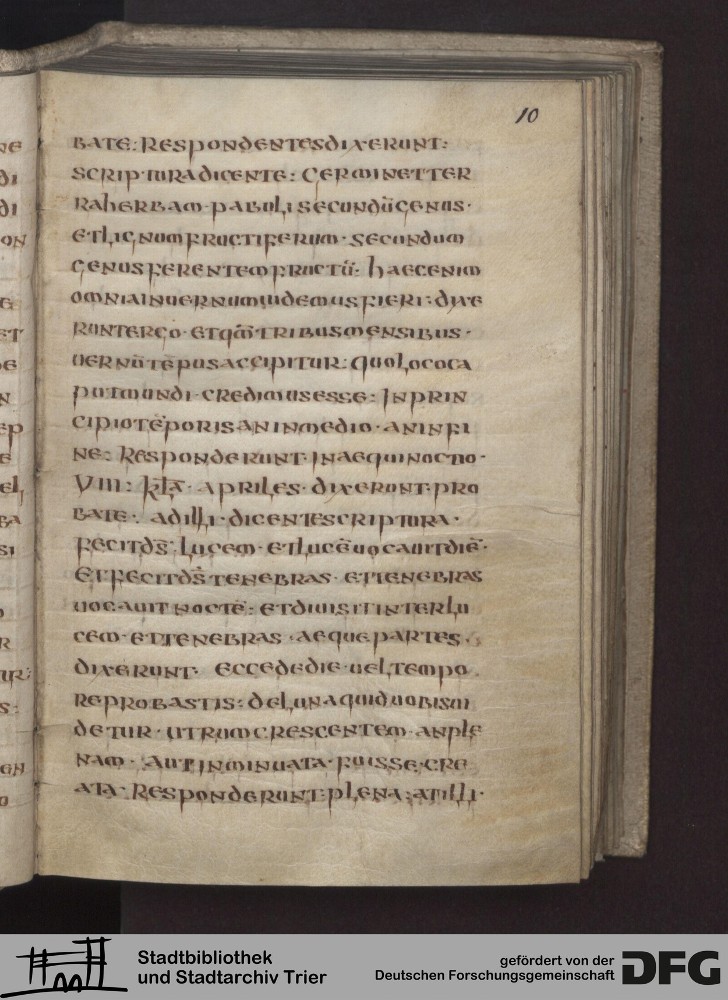 10
BATE: RESPONDENTES DIXERUNT:
SCRIPTURA DICENTE: GERMINET TER
RA HERBAM· PABULI SECUNDŪ GENUS·
ET LIGNUM FRUCTIFERUM· SECUNDUM
GENUS FERENTEM FRUCTŪ: HAEC ENIM
OMNIA IN UERNUM UIDEMUS FIERI: DIXE
RUNT ERGO· ET QM̄ TRIBUS MENSIBUS·
UERNŪ TĒPUS ACCIPITUR: QUO LOCO CA
PUT MUNDI· CREDIMUS ESSE: IN PRIN
CIPIO TĒPORIS AN IN MEDIO· AN IN FI
NE: RESPONDERUNT· IN AEQUINOCTIO·
VIII: KL̄A· APRILES· DIXERUNT· PRO
BATE· AD ILLI· DICENTE SCRIPTURA·
FECIT DS̄· LUCEM· ET LUCĒ UOCAUIT DIĒ·
ET FECIT DS̄ TENEBRAS· ET TENEBRAS
UOCAUIT NOCTĒ: ET DIUISIT INTER LU
CEM· ET TENEBRAS· AEQUE PARTES·
DIXERUNT· ECCE DE DIE· UEL TEMPO
RE PROBASTIS: DE LUNA QUID UOBIS UI
DETUR· UTRUM CRESCENTEM· AN PLE
NAM· AUT INMINUATA· FUISSE CRE
ATA· RESPONDERUNT: PLENA: AT ILLI·
Stadtbibliothek
und Stadtarchiv Trier
gefördert von der
Deutschen Forschungsgemeinschaft
DFG